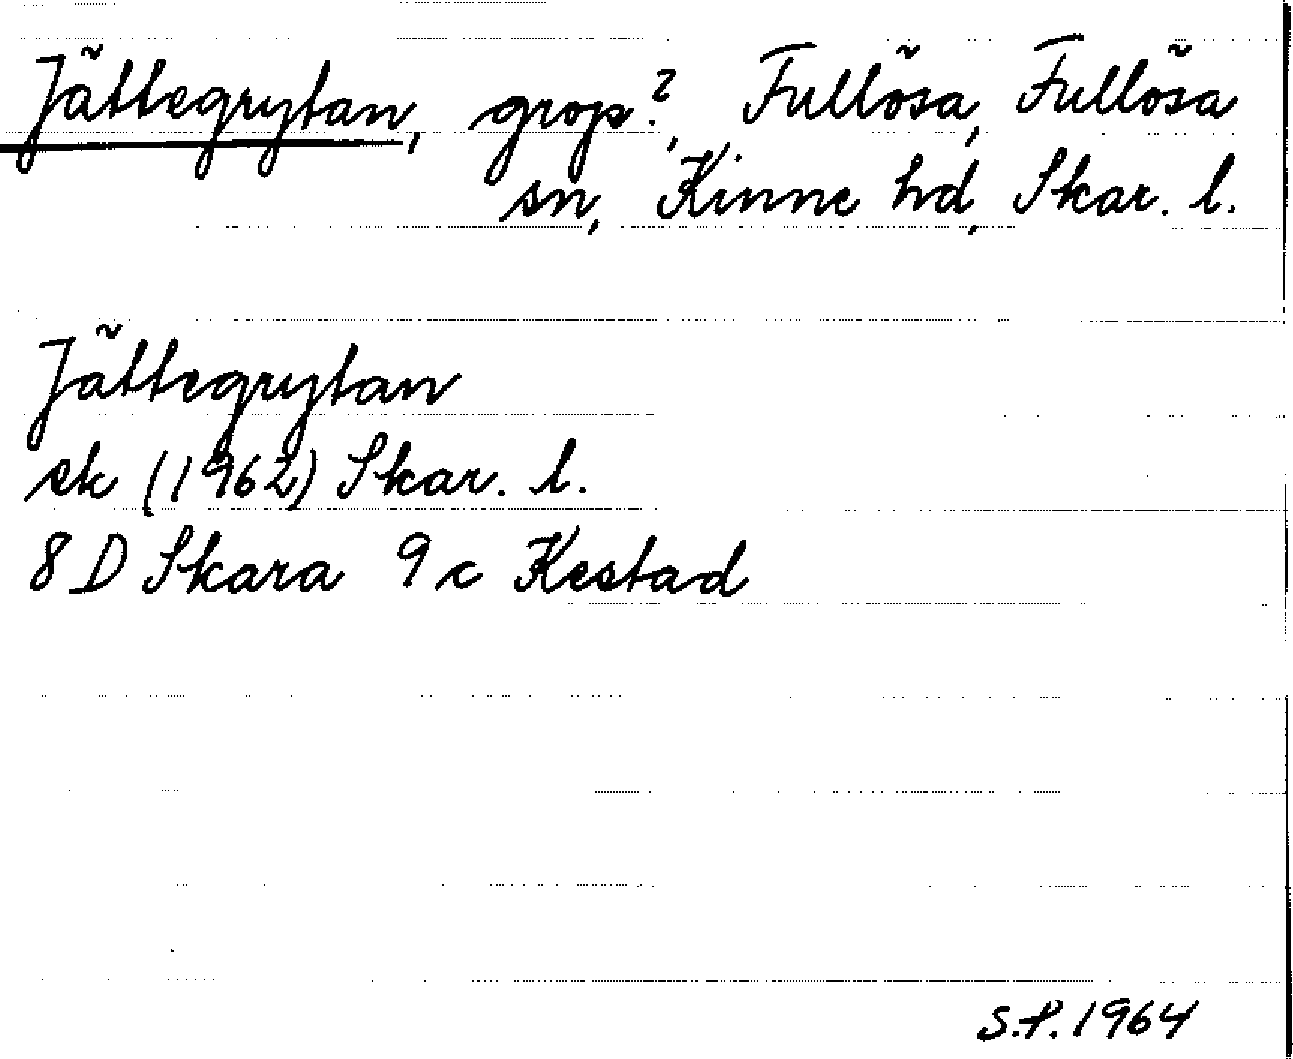 Jättegrytan, grop?, Fullösa, Fullösa
sn, Kinne hd, Skar. l.
Jättegrytan
ek (1962) Skar. l.
8 D Skara 9 c Kestad
S.P. 1964